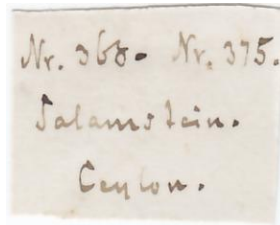 Nr. 368. Nr. 375.
Salamstein.
Ceylon.